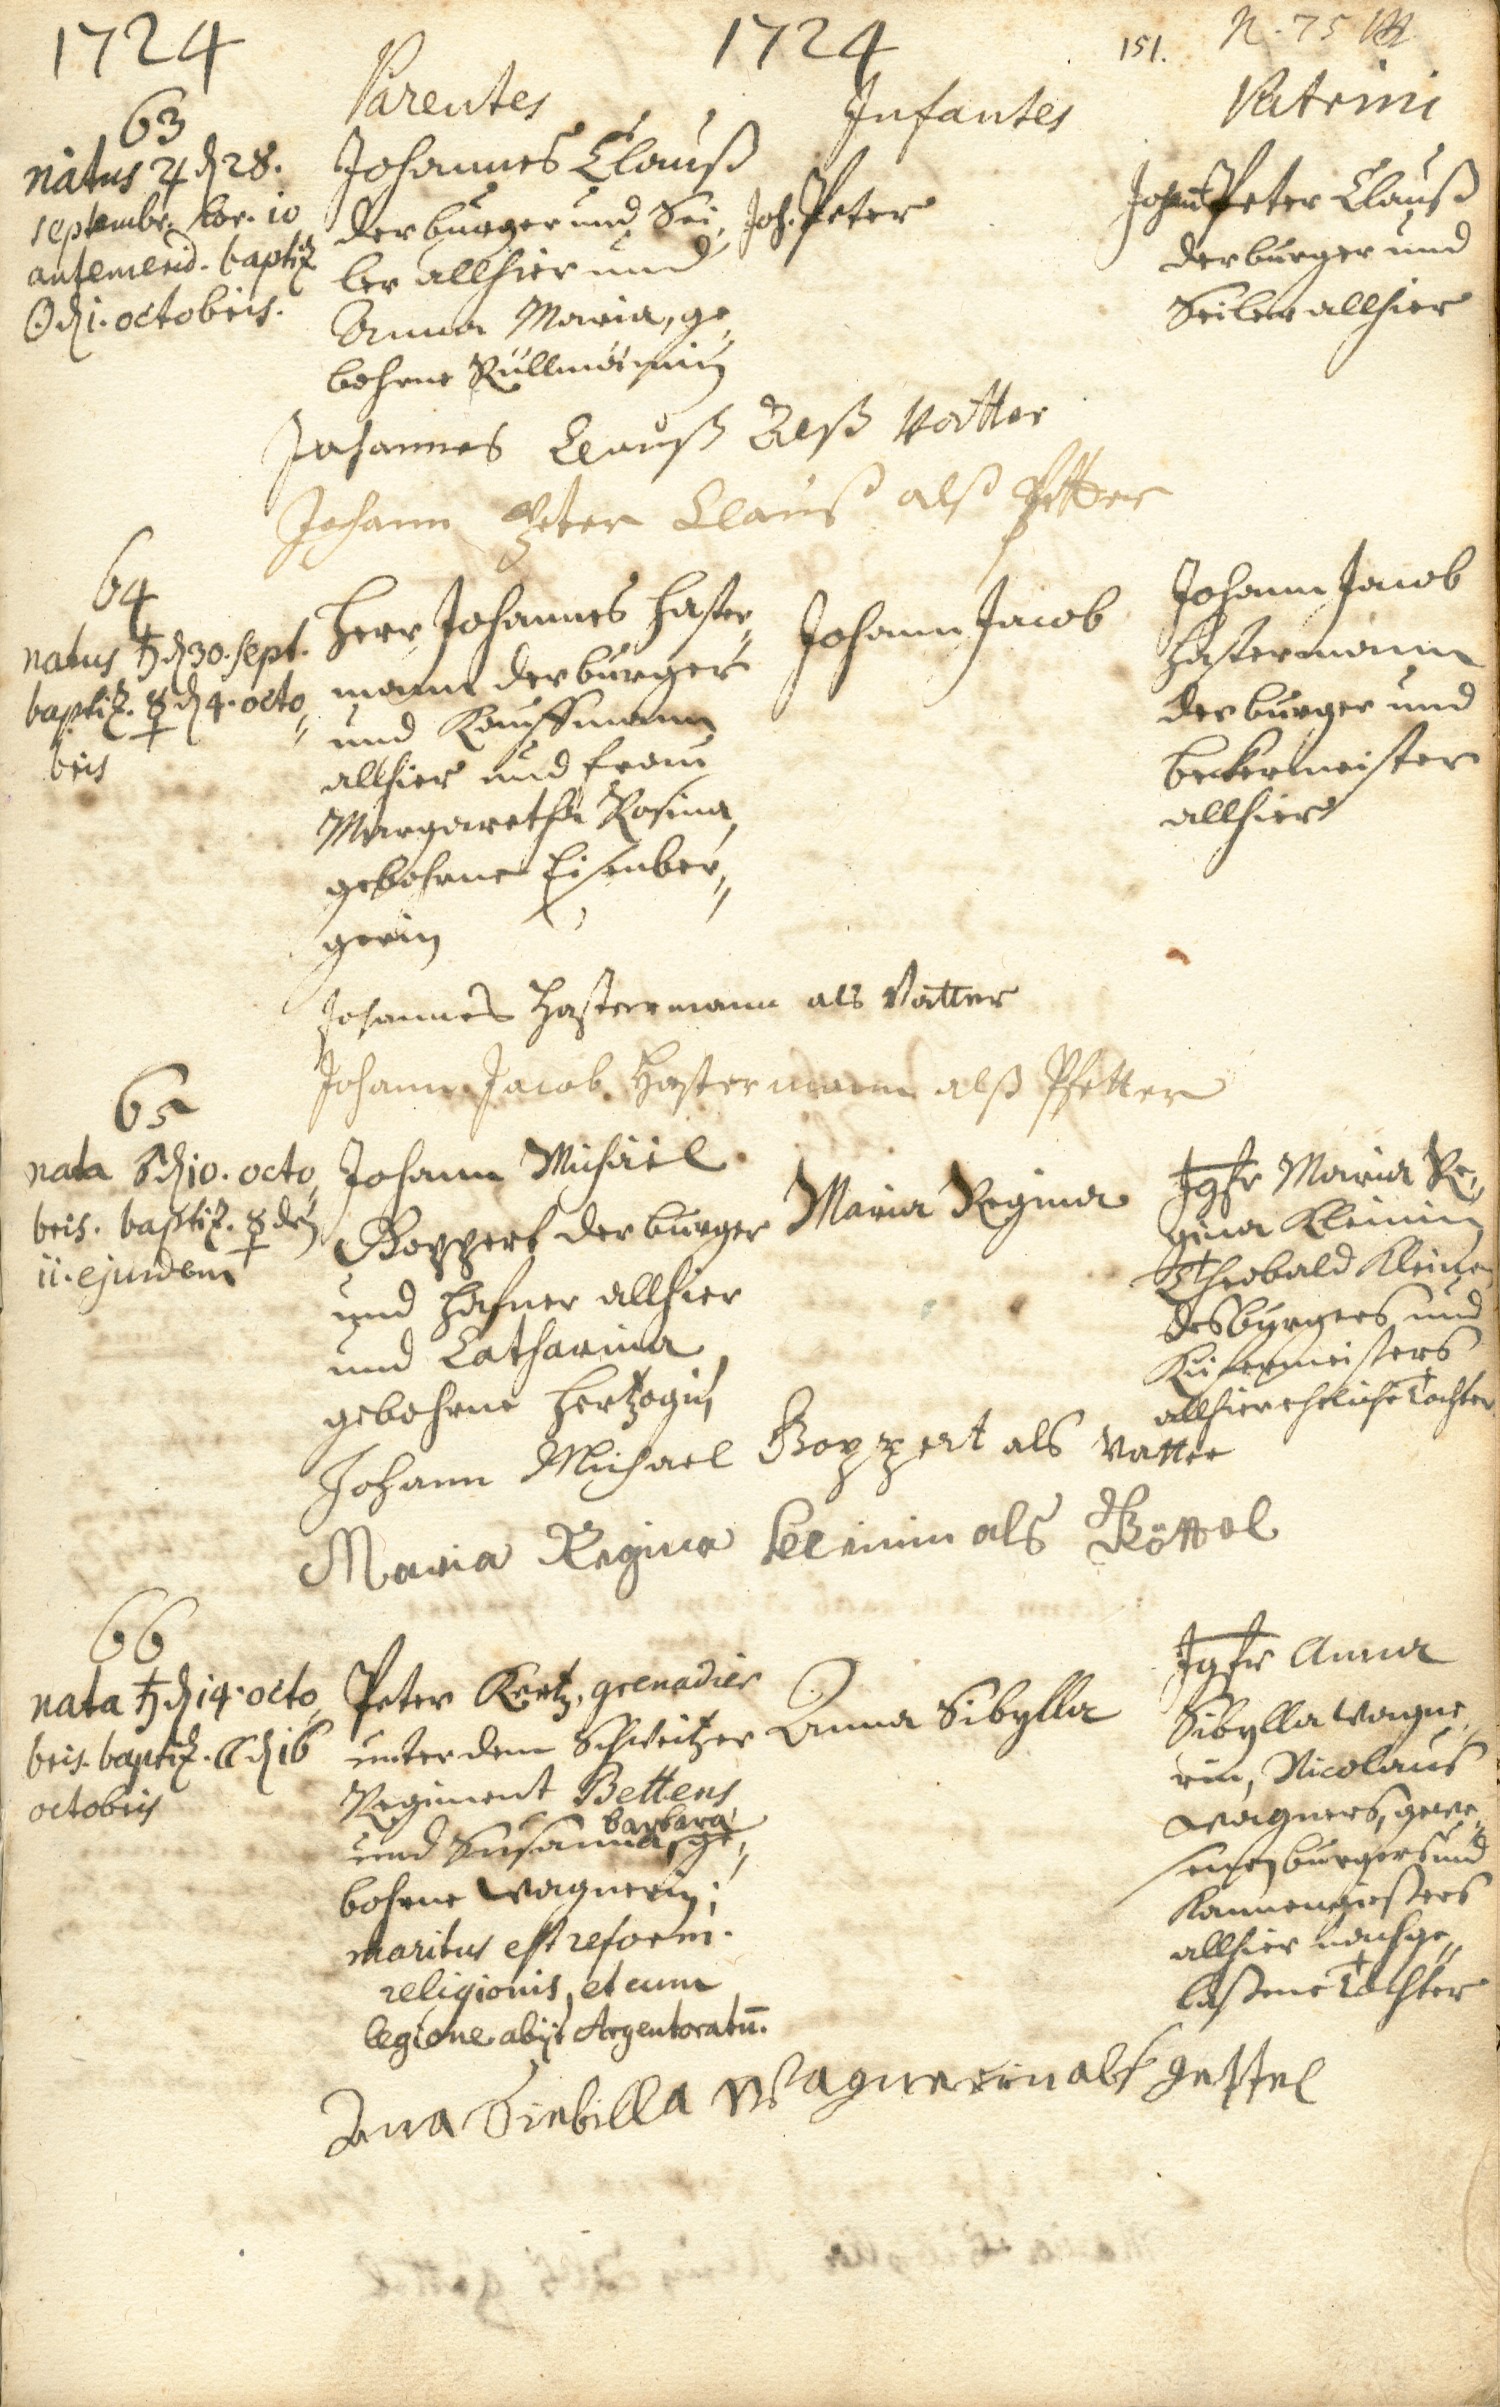 1724
1724
151.
N. 75
Parentes
Infantes
Patrini
63
natus ♃ d 28.
septembr. hor. 10
antemerid. baptiz
☉ d 1. octobris.
Johannes Clauß
der burger und Sei„
ler allhier und
Anna Maria, ge„
bohrne
Joh. Peter
Johann Peter Clauß
der burger und
Seiler allhier
Johannes Clauß Alß Vatter
Johann Peter Clauß alß Petter
64
natus ♄ d 30. sept.
baptiz. ☿ d 4. octo„
bris
Herr Johannes Haster„
mann der burger
und Kauffmann
allhier und frau
Margaretha Rosina,
gebohrne Eisenber„
gerin
Johann Jacob
Johann Jacob
Hastermann
der burger und
beckermeister
allhier
Johannes Hastermann als Vatter
Johann Jacob Hastermann alß Pfetter
65
nata ♂ d 10. octo„
bris. baptiz. ☿ den
11. ejusdem
Johann Michäel
Boppert der burger
und Hafner allhier
und Catharina
gebohrne Hertzogin
Maria Regina
Jgfr Maria Re„
gina Kleinin
Theobald Kleinen
des burgers und
Küfermeisters
allhier eheliche Tochter
Johann Michael Boppert als Vatter
Maria Regina Kleinin als Göttel
66
nata ♄ d 14. octo„
bris. baptiz. ☾ d 16
octobris
Peter Kertz, grenadier
unter dem Schweitzer
Regiment Bettens
barbara
und Susanna, ge„
bohrne Wagnerin;
maritus est reform.
religionis, et cum
legione abijt Argentoratū.
Anna Sibylla
Jgfr Anna
Sibylla Wagne„
rin, Nicolaus
Wagners, gewe„
senen burgers und
Kannengießers
allhier nachge„
laßene Tochter
Ana Siebilla Wagnererin alß gettel